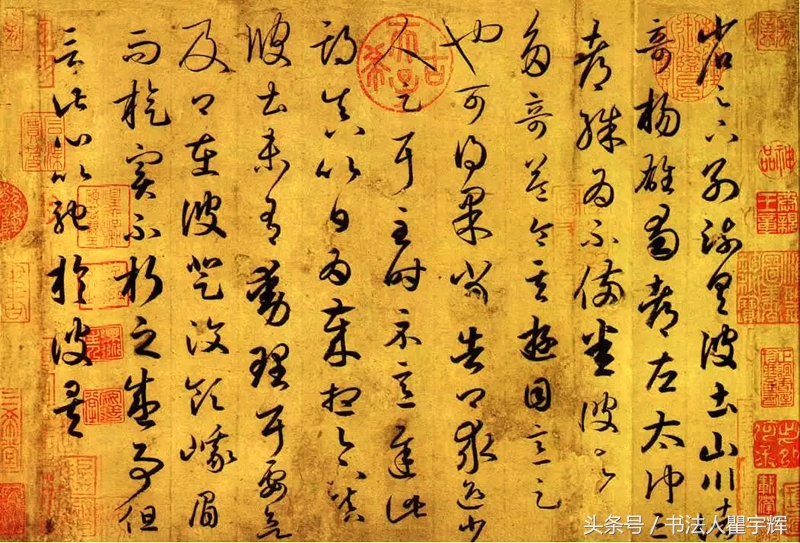 省足下别疏具彼土山川諸
奇揚雄蜀都左太沖三
都殊為不備悉彼故
多奇益令其遊目意足
也可得果當告卿求迎少
人足耳至時示意遲此
期真以日為歲想足下鎮
彼土未有動理耳要欲
及卿在彼登汶領峨眉
而旋實不朽之盛事但
言此心以馳於彼矣
古希天子
神品
头条号 / 书法人瞿宇辉